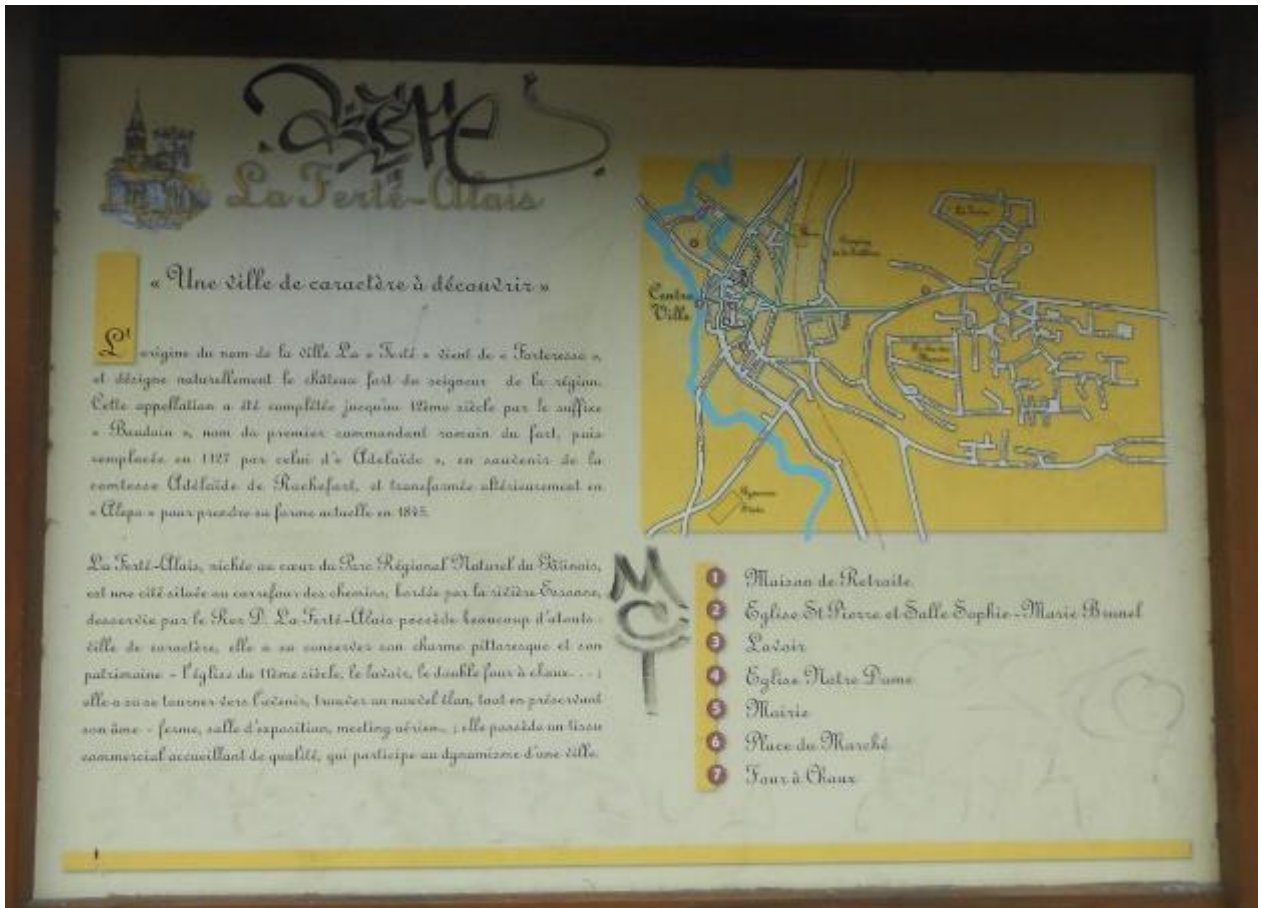 La Ferté-Alais
« Une ville de caractère à découvrir »
L'origine du nom de la ville La « Ferté » vient de « Forteresse »,
et désigne naturellement le château fort du seigneur de la région.
Cette appellation a été complétée jusqu'au 12ème siècle par le suffixe
« Baudoin », nom du premier commandant romain du fort, puis
remplacée en 1127 par celui d'« Adélaïde », en souvenir de la
comtesse Adélaïde de Rochefort, et transformée ultérieurement en
« Alepa » pour prendre sa forme actuelle en 1845.
La Ferté-Alais, nichée au cœur du Parc Régional Naturel du Gâtinais,
est une cité située au carrefour des chemins, bordée par la rivière Essonne,
desservie par le Rer D. La Ferté-Alais possède beaucoup d'atouts :
ville de caractère, elle a su conserver son charme pittoresque et son
patrimoine - l'église du 11ème siècle, le lavoir, le double four à chaux... ;
elle a su se tourner vers l'avenir, trouver un nouvel élan, tout en préservant
son âme - ferme, salle d'exposition, meeting aérien... ; elle possède un tissu
commercial accueillant de qualité, qui participe au dynamisme d'une ville.
Centre
Ville
MCT
1 Maison de Retraite
2 Eglise St Pierre et Salle Sophie-Marie Brunel
3 Lavoir
4 Eglise Notre Dame
5 Mairie
6 Place du Marché
7 Four à Chaux